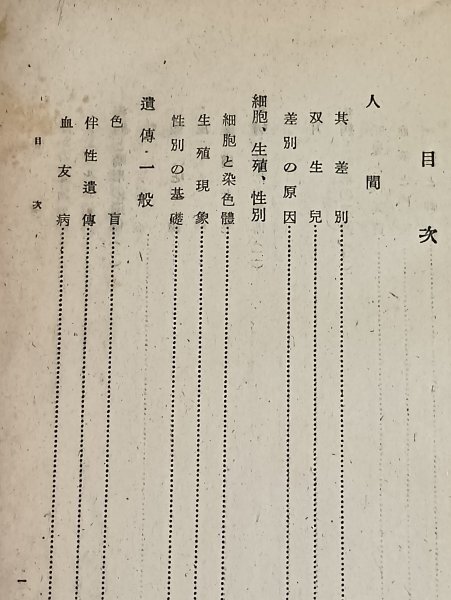 目次
人間
其差別
双生兒
差別の原因
細胞、生殖、性別
細胞と染色體
生殖現象
性別の基礎
遺傳一般
色盲
伴性遺傳
血友病
目次
一